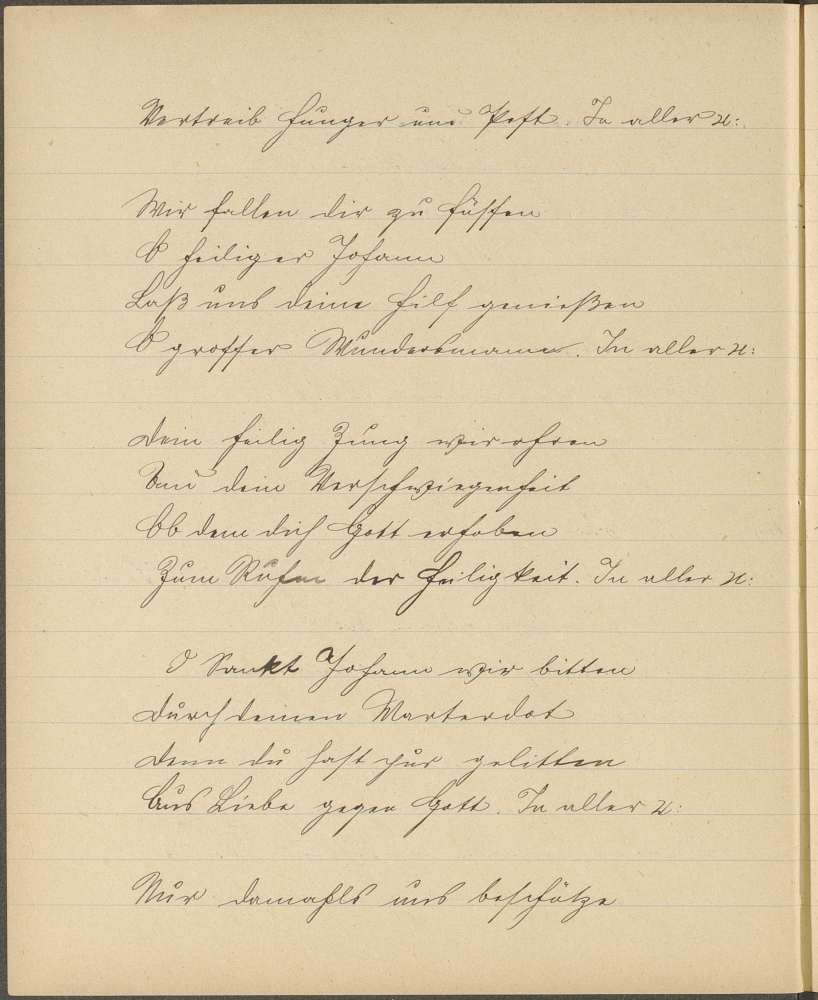 Vertreib Hunger und Pest. In aller u:
Wir fallen dir zu füssen
O heiliger Johann
Laß uns deine Hilf genießen
O grosser Wundersmann. In aller u:
Dein heilig Zung wir ehren
Und dein Verschwiegenheit
Ob dem dich Gott erhoben
Zum Ruhm der Heiligkeit. In aller u:
O Sankt Johann wir bitten
durch deinen Marterdot
denn du hast pur gelitten
Aus Liebe gegen Gott. In aller u:
Nur damahls uns beschütze